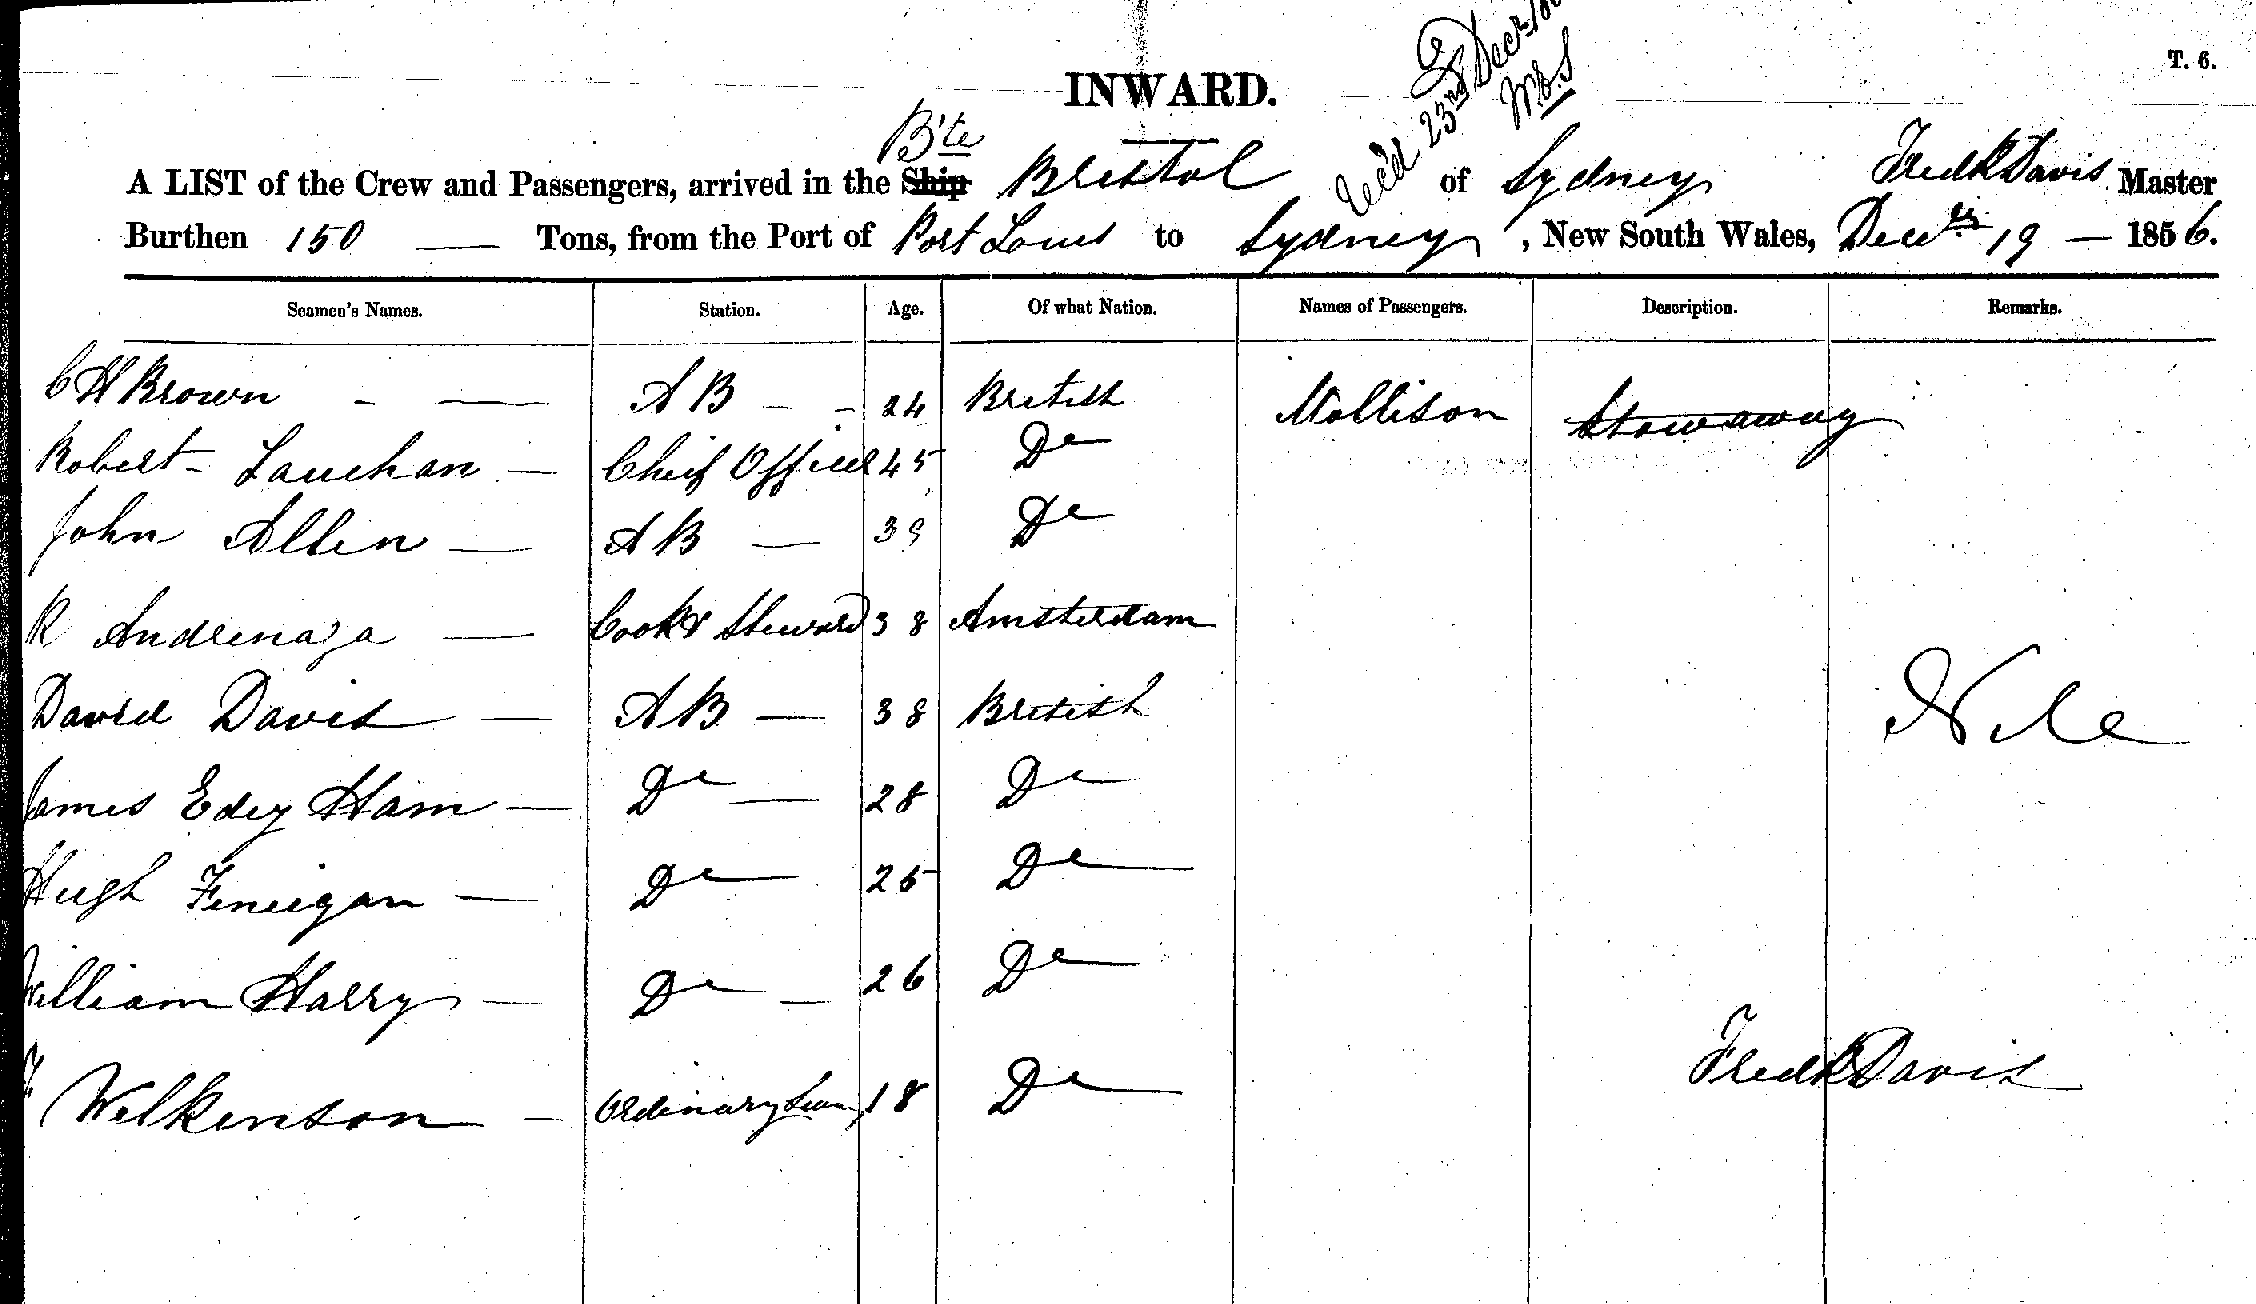 T. 6.
INWARD.
Rec'd 23rd Decr
B'te
A LIST of the Crew and Passengers, arrived in the Ship Bristol of Sydney Fredk Davis Master
Burthen 150 — Tons, from the Port of Port Louis to Sydney, New South Wales, Decr 19 — 1856.
Seamen's Names. Station. Age. Of what Nation. Names of Passengers. Description. Remarks.
C H Brown - — A B - - 24 British Mollison Stowaway
Robert Lauchan — Chief Officer 45 Do
John Allen — A B — 39 Do
R Andrenaza — Cook & Steward 38 Amsterdam
David Davis — A B — 38 British
James Edey Ham — Do — 28 Do
Hugh Finigan — Do 25 Do
William Harry — Do — 26 Do
F Wilkenson — Ordinary Seaman 18 Do
Fredk Davis